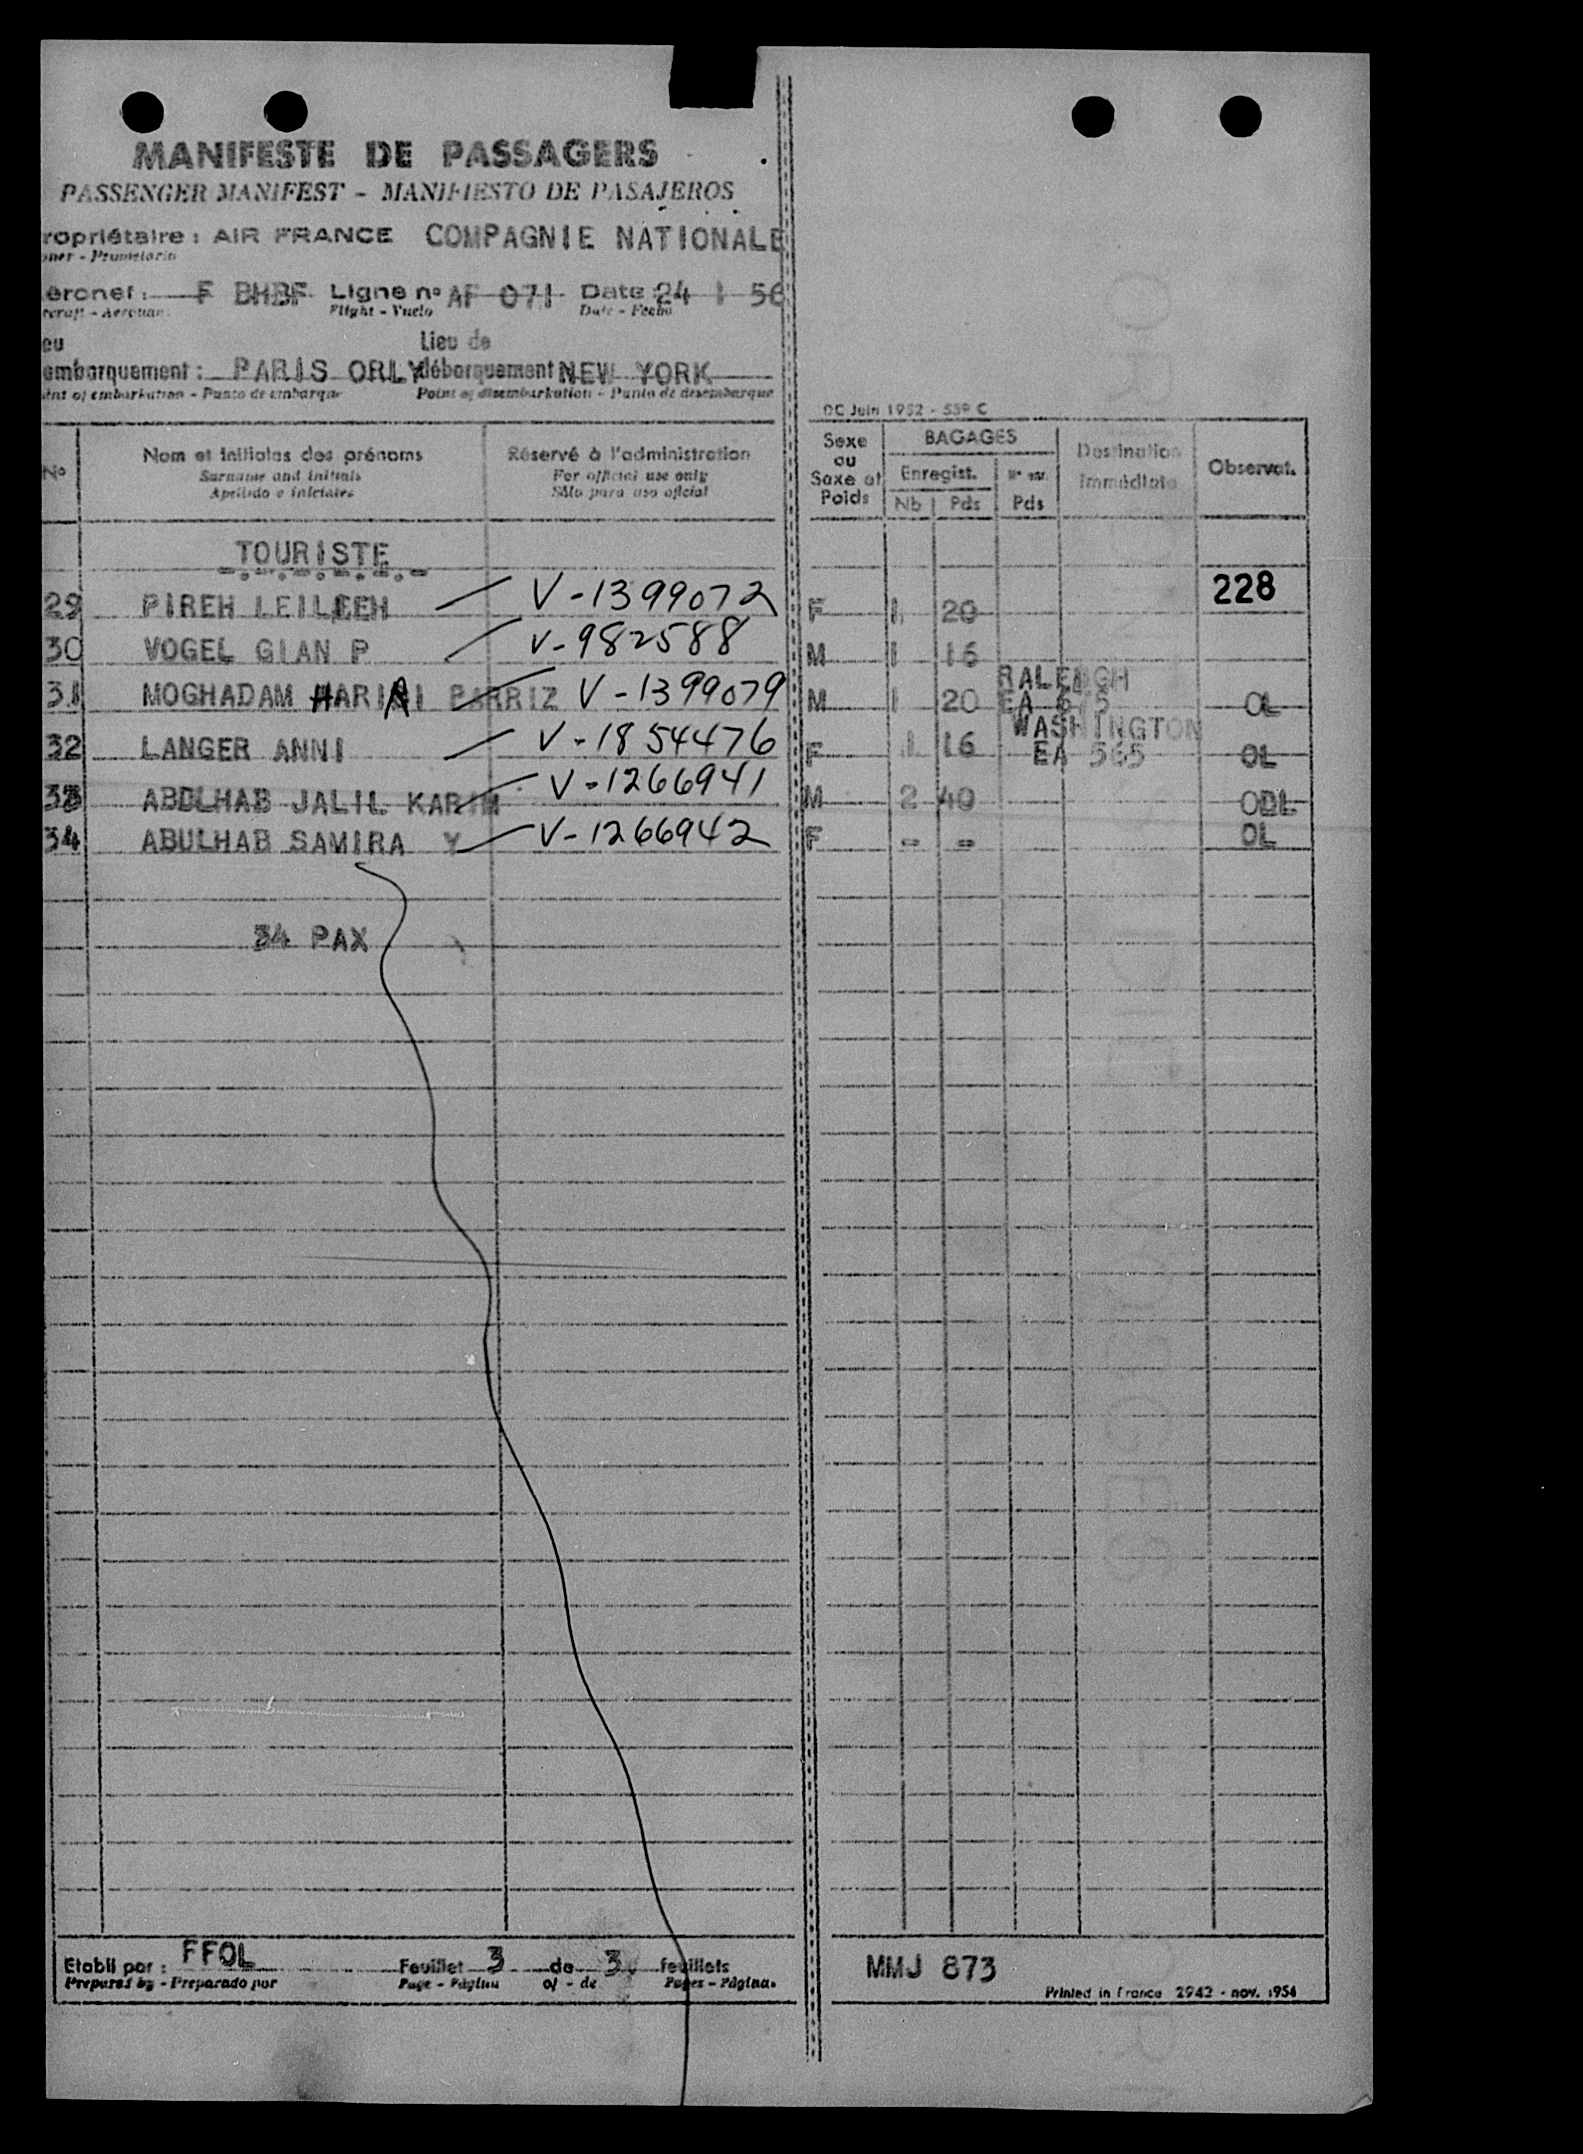 MANIFESTE DE PASSAGERS
PASSENGER MANIFEST - MANIFIESTO DE PASAJEROS
ropriétaire : AIR FRANCE COMPAGNIE NATIONALE
ner - Propietario
éronef : F BHBF Ligne n° AF 071 Date 24 1 56
rcraft - Aeronave Flight - Vuelo Date - Fecha
eu Lieu de
embarquement : PARIS ORLY débarquement NEW YORK
int of embarkation - Punto de embarque Point of disembarkation - Punto de desembarque
DC Juin 1952 - 559 C
N° Nom et initiales des prénoms Réservé à l'administration Sexe ou Saxe et Poids BAGAGES Destination Immédiate Observat.
Surname and initials For official use only Enregist.
Apellido e iniciales Sólo para uso oficial Nb Pds Pds
TOURISTE
228
29 PIREH LEILEEH V-1399072 F 1 20
30 VOGEL GIAN P V-982588 M 1 16
31 MOGHADAM HARIRI PARRIZ V-1399079 M 1 20 RALEIGH EA OL
32 LANGER ANNI V-1854476 F 1 16 WASHINGTON EA 565 OL
33 ABDLHAB JALIL KARIM V-1266941 M 2 40 ODL
34 ABULHAB SAMIRA Y V-1266942 F - - OL
34 PAX
Etabli par : FFOL Feuillet 3 de 3 feuillets
Prepared by - Preparado por Page - Página of - de Pages - Páginas
MMJ 873
Printed in France 2942 - nov. 1954